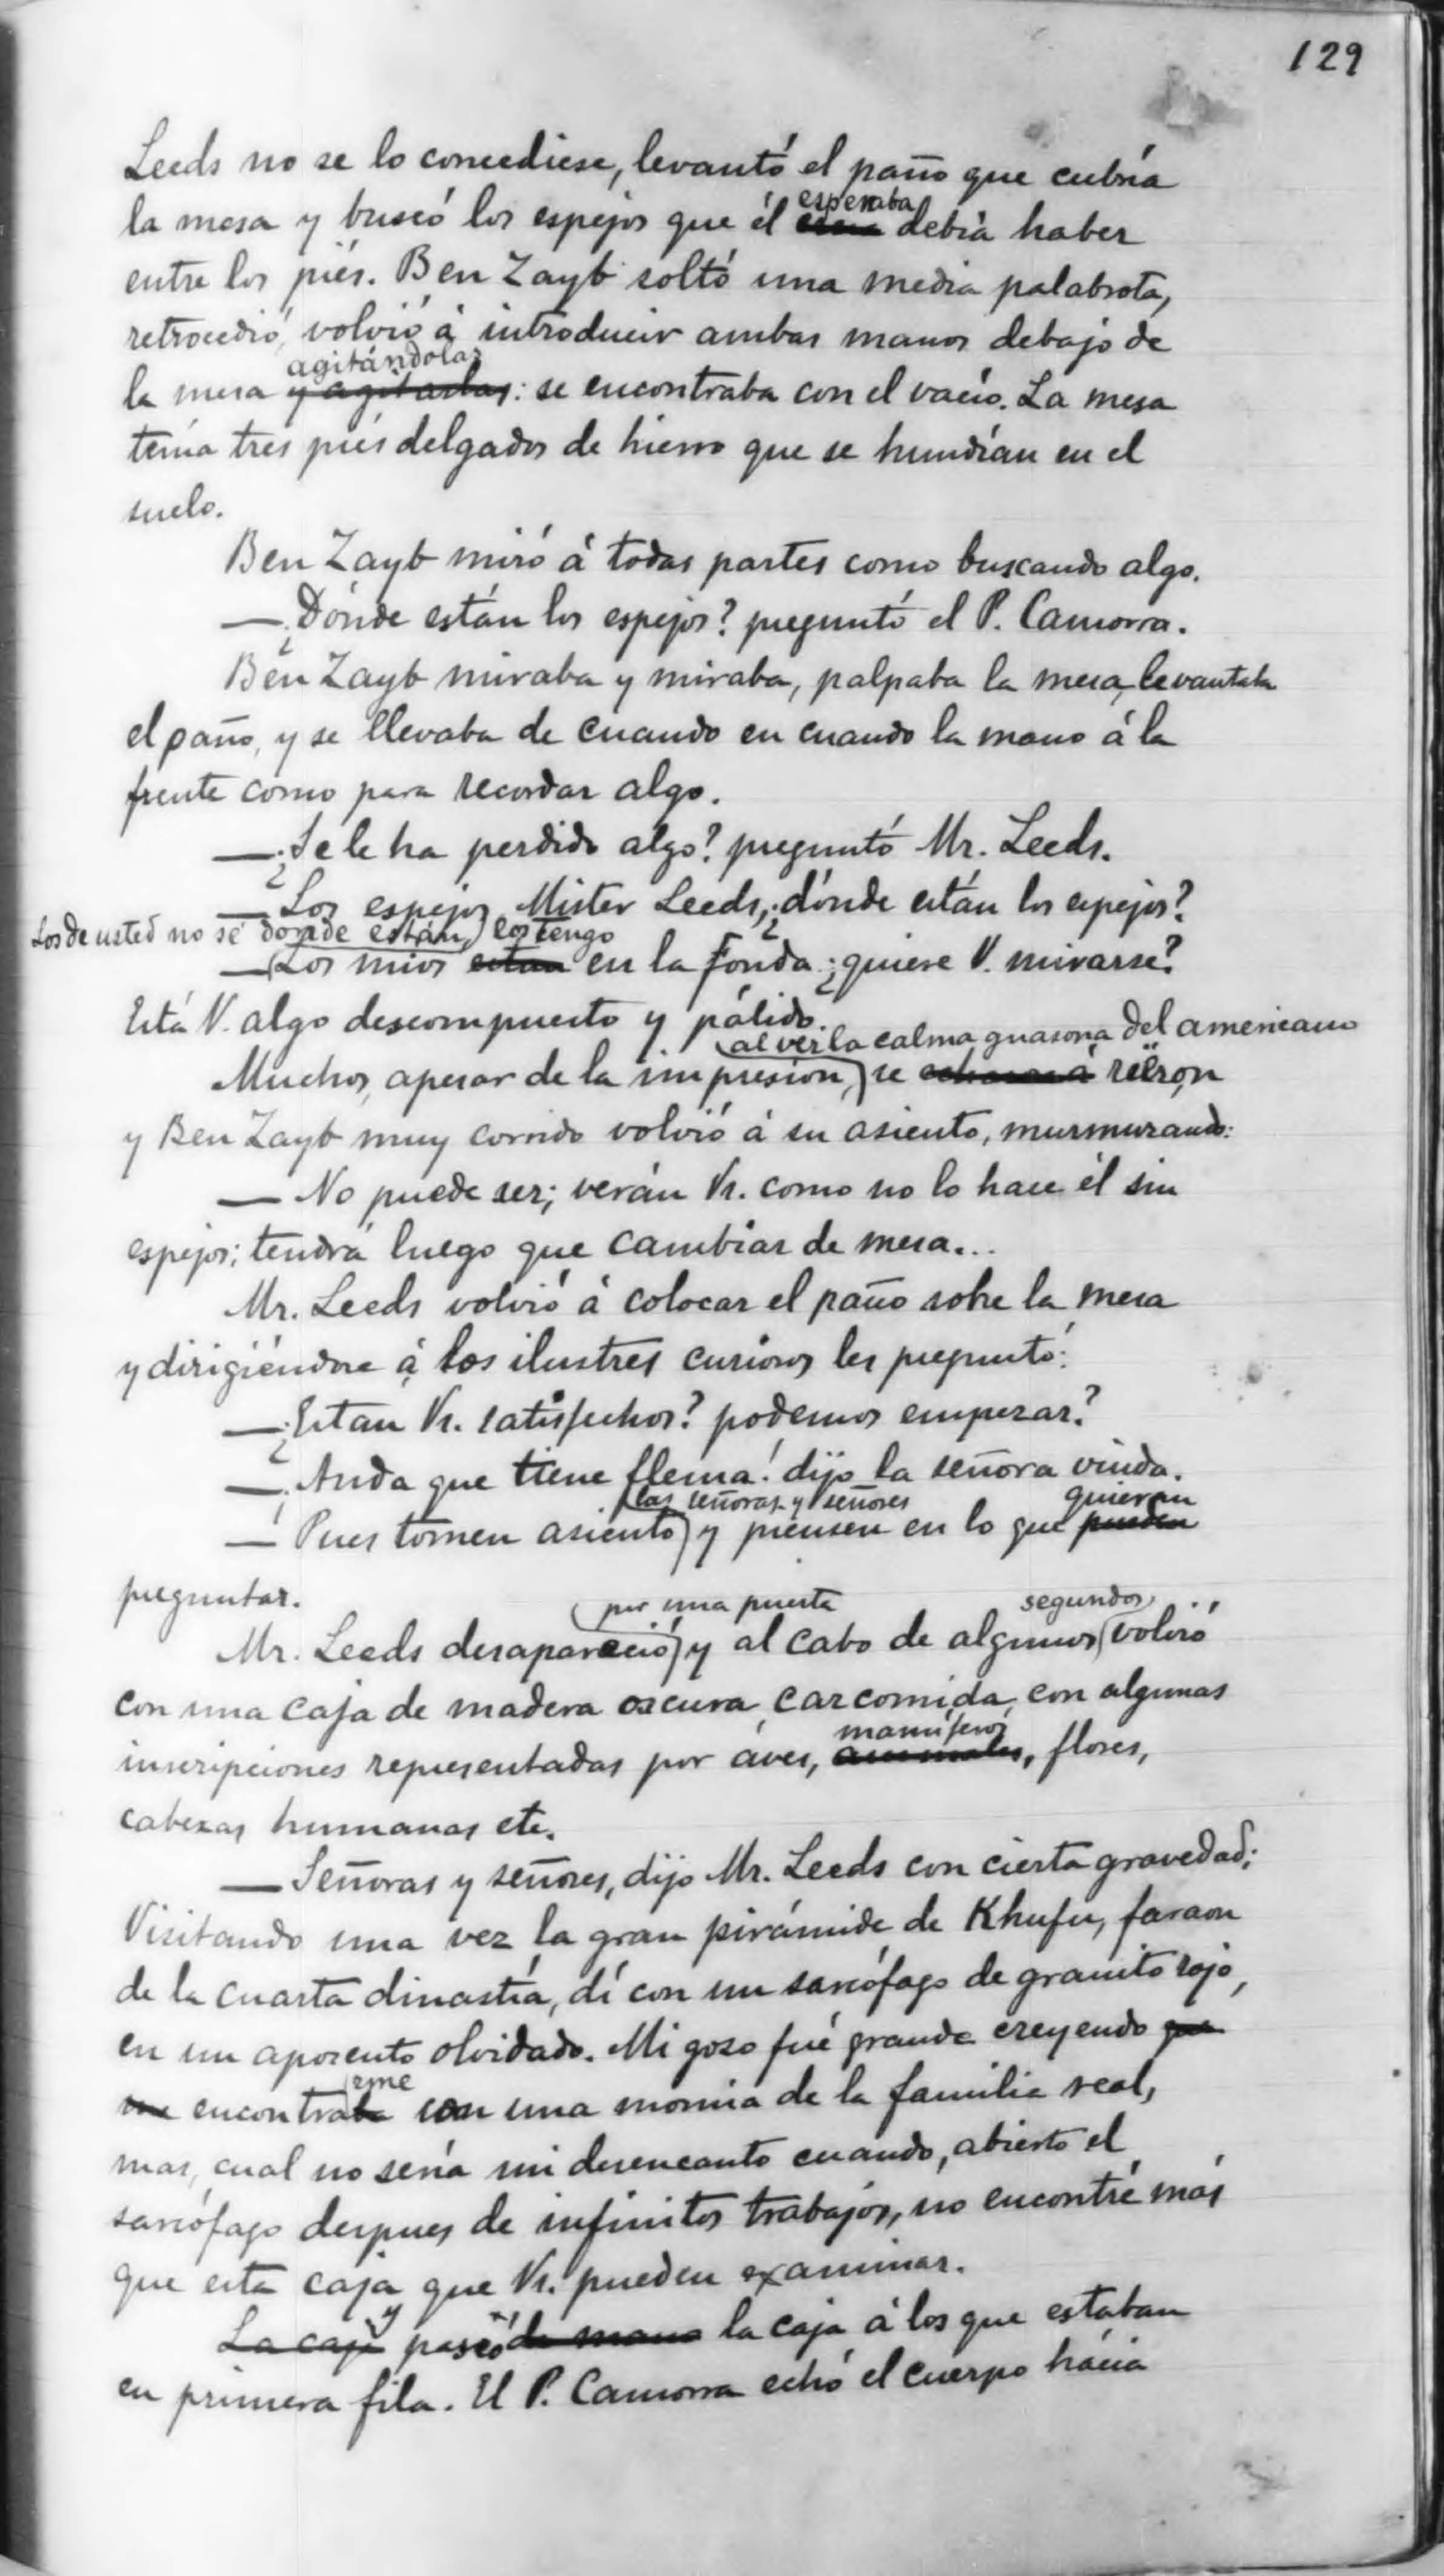 129
Leeds no se lo concediese, levantó el paño que cubría
esperaba
la mesa y buscó los espejos que él debía haber
entre los piés. Ben Zayb soltó una media palabrota,
retrocedió, volvió á introducir ambas manos debajo de
agitándolas
la mesa y agitarlas: se encontraba con el vacío. La mesa
tenía tres piés delgados de hierro que se hundían en el
suelo.
Ben Zayb miró á todas partes como buscando algo.
—¿Dónde están los espejos? preguntó el P. Camorra.
Ben Zayb miraba y miraba, palpaba la mesa, levantaba
el paño, y se llevaba de cuando en cuando la mano á la
frente como para recordar algo.
—¿Se le ha perdido algo? preguntó Mr. Leeds.
—Los espejos, Mister Leeds, ¿dónde están los espejos?
Los de usted no sé donde están, los tengo
—Los mios estan en la fonda; ¿quiere V. mirarse?
Está V. algo descompuesto y pálido.
al ver la calma guasona del americano
Muchos, apesar de la impresion, se echaron á rieron
y Ben Zayb muy corrido volvió á su asiento, murmurando:
— No puede ser; verán Vs. como no lo hace él sin
espejos; tendrá luego que cambiar de mesa...
Mr. Leeds volvió á colocar el paño sobre la mesa
y dirigiéndose á los ilustres curiosos les preguntó:
—¿Estan Vs. satisfechos? podemos empezar?
—¡Anda que tiene flema! dijo la señora viuda.
las señoras y señores quieran
— Pues tomen asiento y piensen en lo que pueden
preguntar.
por una puerta segundos
Mr. Leeds desapareció y al cabo de algunos volvió
con una caja de madera oscura, carcomida, con algunas
mamíferos
inscripciones representadas por aves, animales, flores,
cabezas humanas etc.
—Señoras y señores, dijo Mr. Leeds con cierta gravedad;
Visitando una vez la gran pirámide de Khufu, faraon
de la cuarta dinastía, dí con un sarcófago de granito rojo,
en un aposento olvidado. Mi gozo fué grande creyendo que
rme
me encontraba con una momia de la familia real,
mas, cual no sería mi desencanto cuando, abierto el
sarcófago despues de infinitos trabajos, no encontré más
que esta caja que Vs. pueden examinar.
y
La caja paseó de mano la caja á los que estaban
en primera fila. El P. Camorra echó el cuerpo hácia